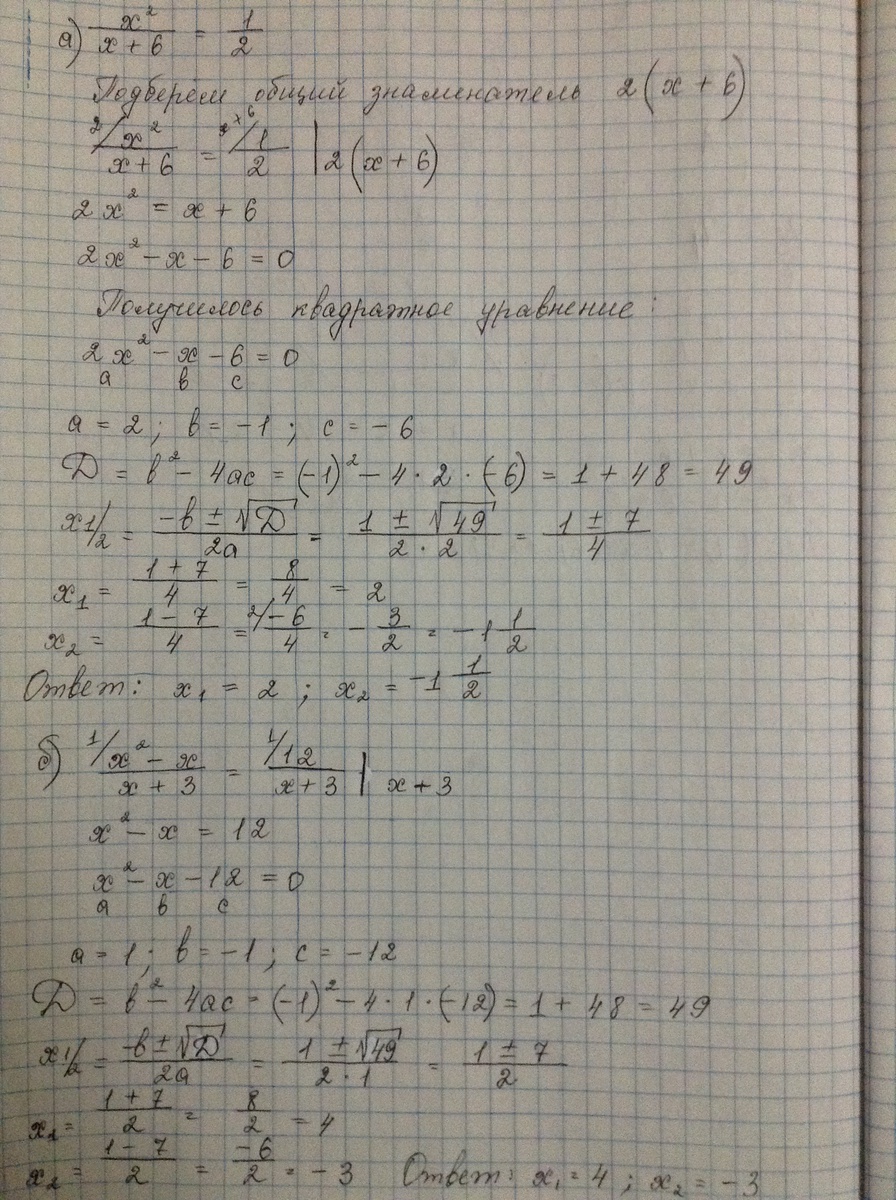 а) x²/(x + 6) = 1/2
Подберём общий знаменатель 2(x + 6)
²/ x²/(x + 6) = ˣ⁺⁶/ 1/2 | 2(x + 6)
2x² = x + 6
2x² - x - 6 = 0
Получилось квадратное уравнение:
2x² - x - 6 = 0
a в c
a = 2; в = -1; c = -6
D = в² - 4ac = (-1)² - 4 · 2 · (-6) = 1 + 48 = 49
x1/2 = (-в ± √D)/2a = (1 ± √49)/(2 · 2) = (1 ± 7)/4
x₁ = (1 + 7)/4 = 8/4 = 2
x₂ = (1 - 7)/4 = ²/ -6/4 = -3/2 = -1 1/2
Ответ: x₁ = 2; x₂ = -1 1/2
б) ¹/ (x² - x)/(x + 3) = ¹/ 12/(x + 3) | x + 3
x² - x = 12
x² - x - 12 = 0
a в c
a = 1; в = -1; c = -12
D = в² - 4ac = (-1)² - 4 · 1 · (-12) = 1 + 48 = 49
x1/2 = (-в ± √D)/2a = (1 ± √49)/(2 · 1) = (1 ± 7)/2
x₁ = (1 + 7)/2 = 8/2 = 4
x₂ = (1 - 7)/2 = -6/2 = -3 Ответ: x₁ = 4; x₂ = -3